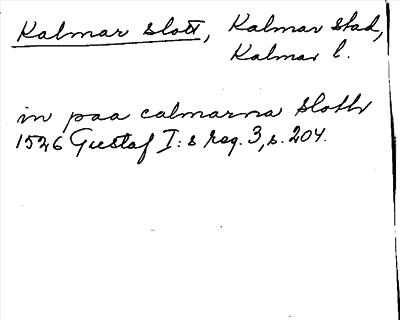 Kalmar slott, Kalmar stad,
Kalmar l.
in paa calmarna Slothz
1526 Gustaf I:s reg. 3, s. 204.